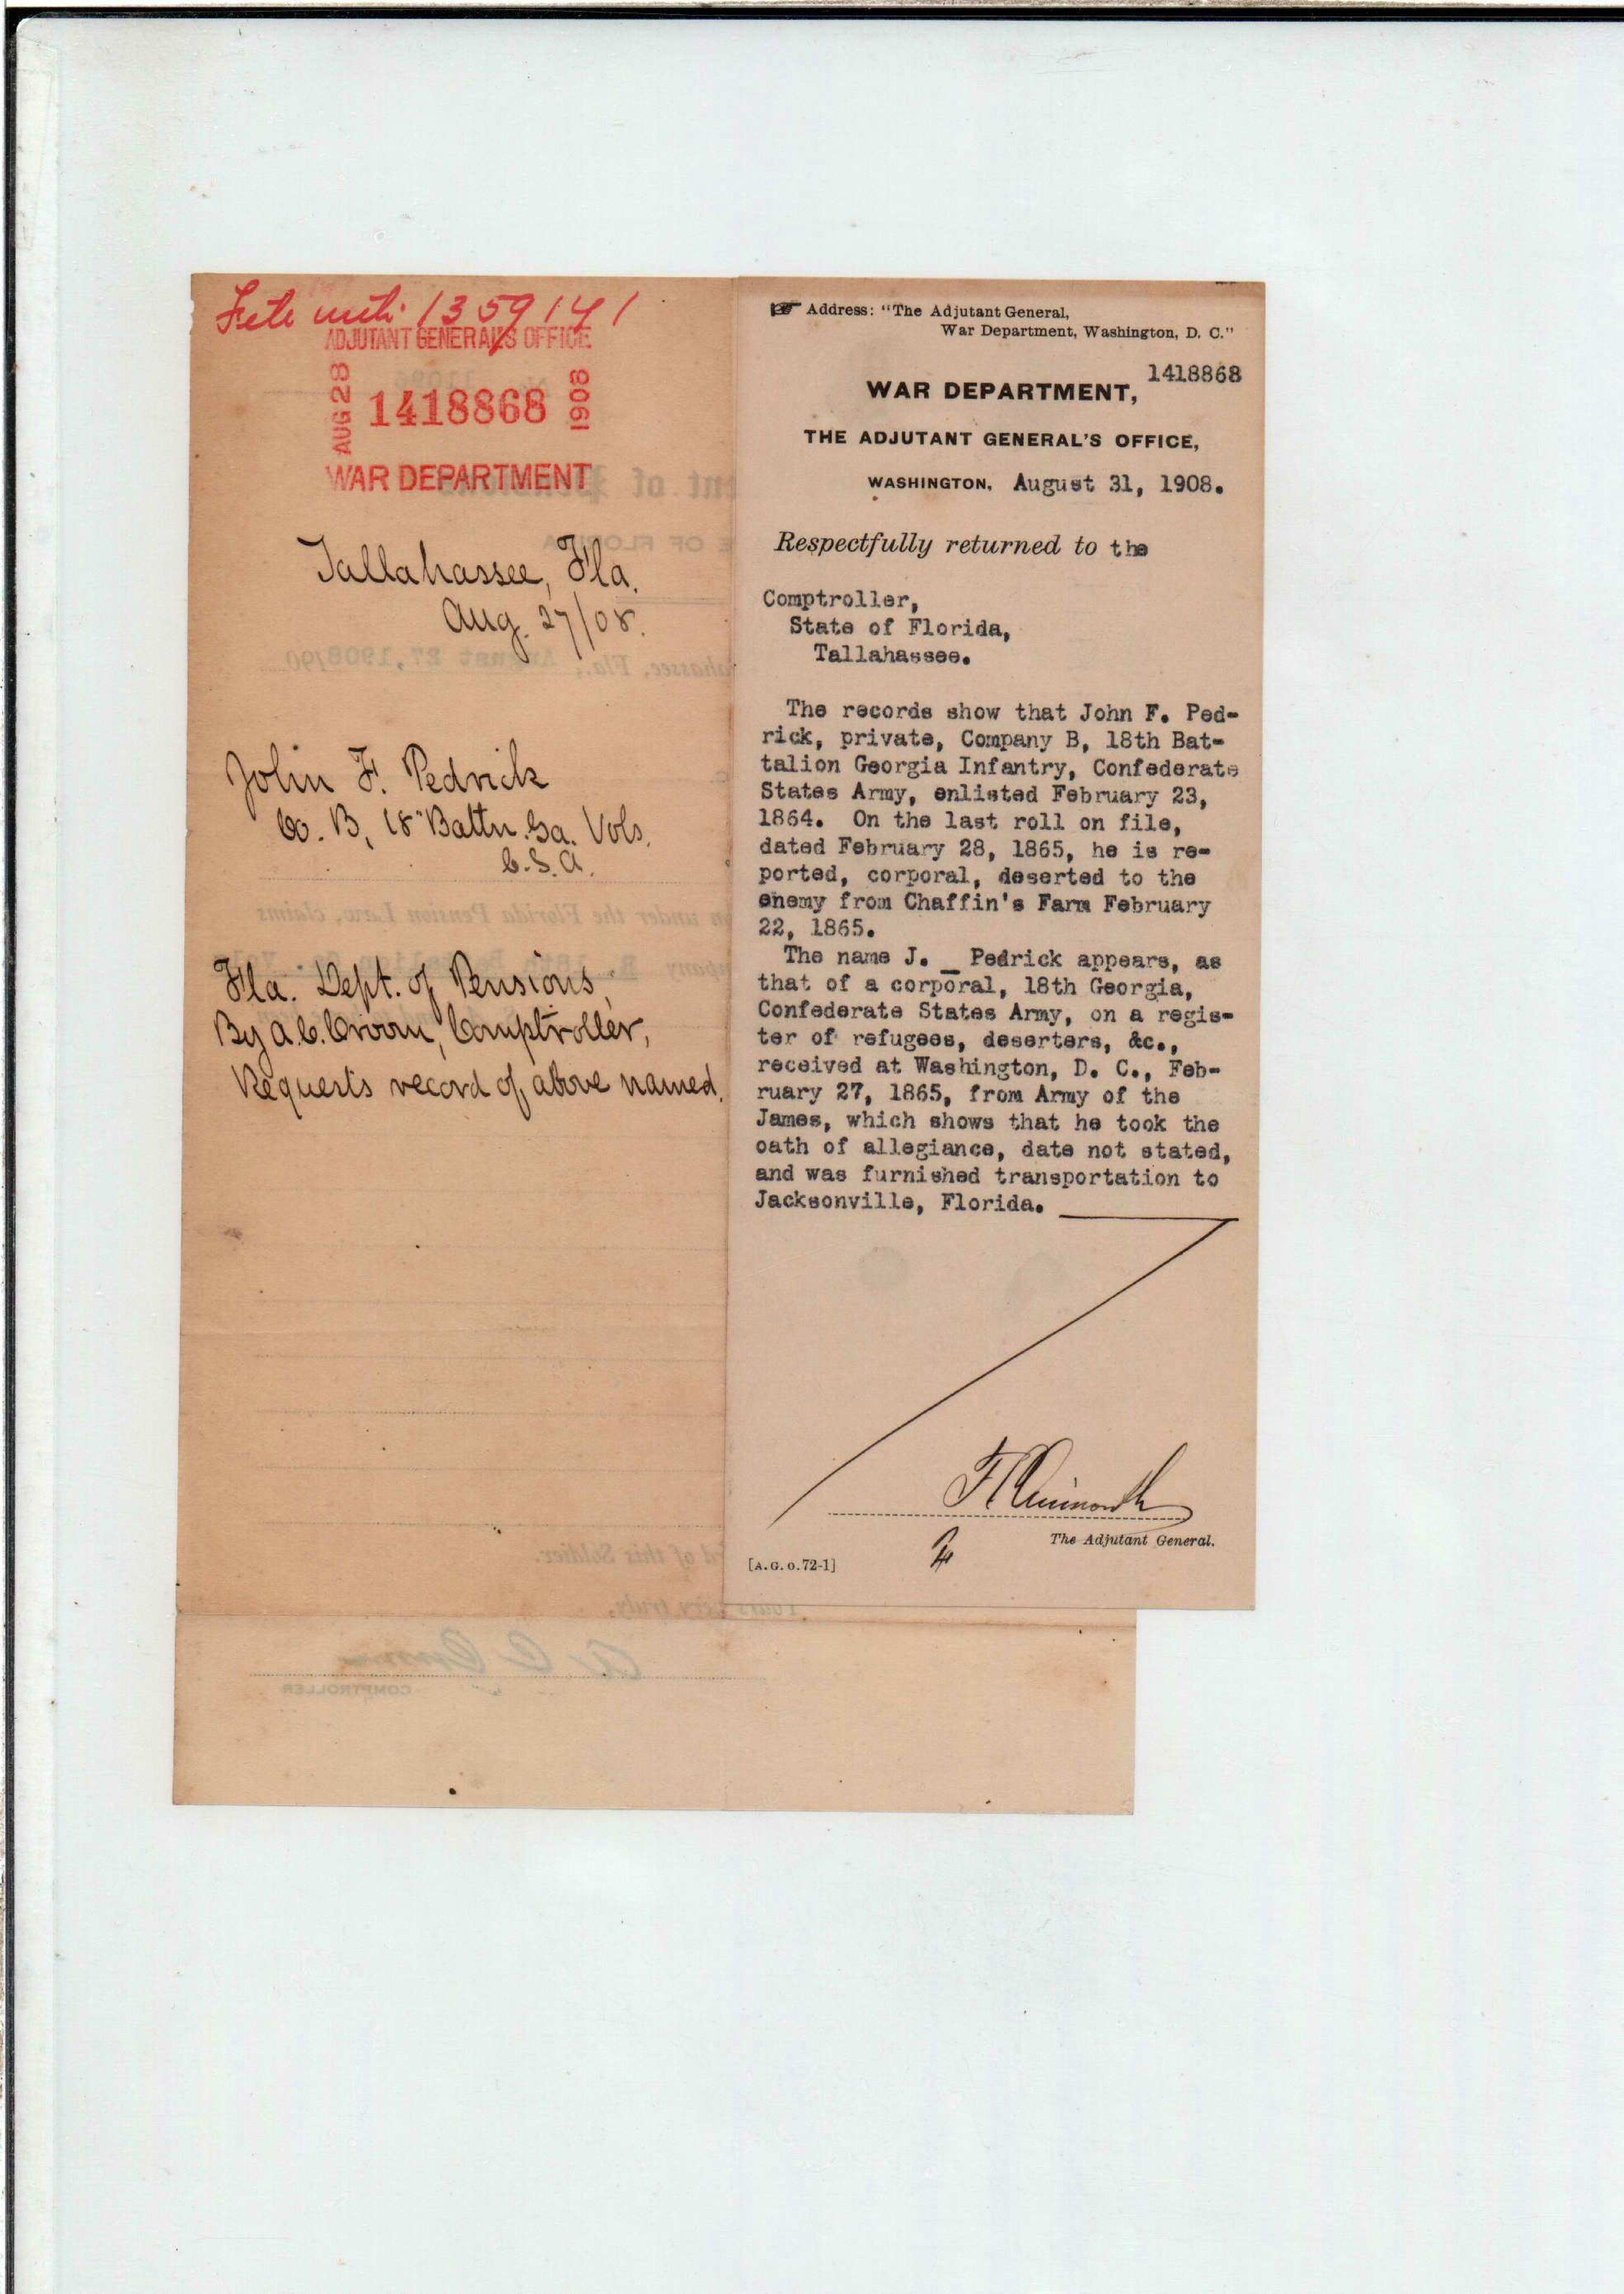 File with 1359141
ADJUTANT GENERAL'S OFFICE
AUG 28 1418868 1908
WAR DEPARTMENT
Tallahassee, Fla.
Aug. 27/08.
John F. Pedrick
Co. B, 18" Battn. Ga. Vols.
C.S.A.
Fla. Dept. of Pensions,
By A.C. Croom, Comptroller,
Requests record of above named.
Address: "The Adjutant General,
War Department, Washington, D. C."
1418868
WAR DEPARTMENT,
THE ADJUTANT GENERAL'S OFFICE,
WASHINGTON, August 31, 1908.
Respectfully returned to the
Comptroller,
State of Florida,
Tallahassee.
The records show that John F. Ped-
rick, private, Company B, 18th Bat-
talion Georgia Infantry, Confederate
States Army, enlisted February 23,
1864. On the last roll on file,
dated February 28, 1865, he is re-
ported, corporal, deserted to the
enemy from Chaffin's Farm February
22, 1865.
The name J. _ Pedrick appears, as
that of a corporal, 18th Georgia,
Confederate States Army, on a regis-
ter of refugees, deserters, &c.,
received at Washington, D. C., Feb-
ruary 27, 1865, from Army of the
James, which shows that he took the
oath of allegiance, date not stated,
and was furnished transportation to
Jacksonville, Florida.
F C Ainsworth
The Adjutant General.
[A.G.O.72-1]